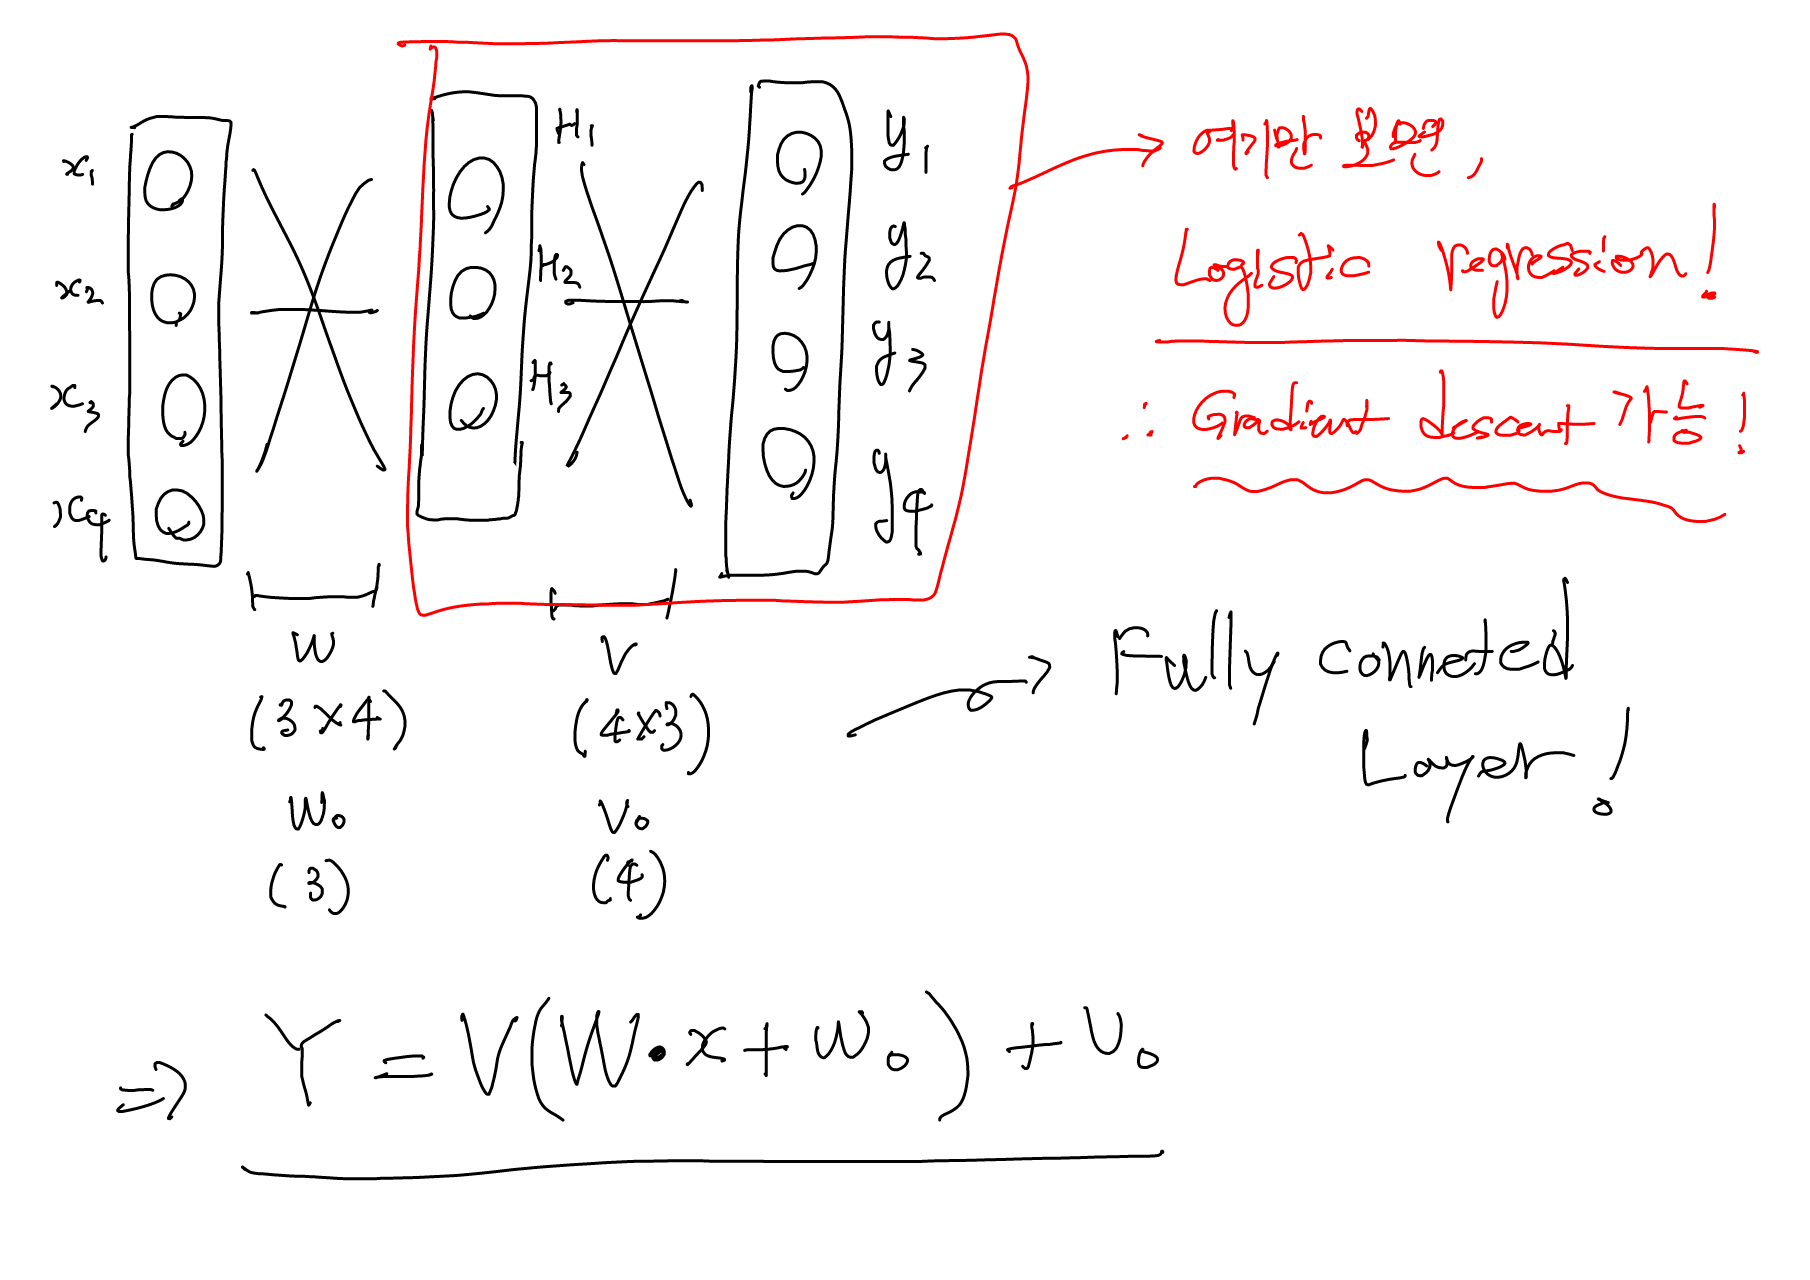 x₁
x₂
x₃
x₄
H₁
H₂
H₃
y₁
y₂
y₃
y₄
여기만 보면,
Logistic regression!
∴ Gradient descent 가능!
W
(3×4)
W₀
(3)
V
(4×3)
V₀
(4)
Fully conneted
Layer!
⇒ Y = V(W•x+W₀) + V₀